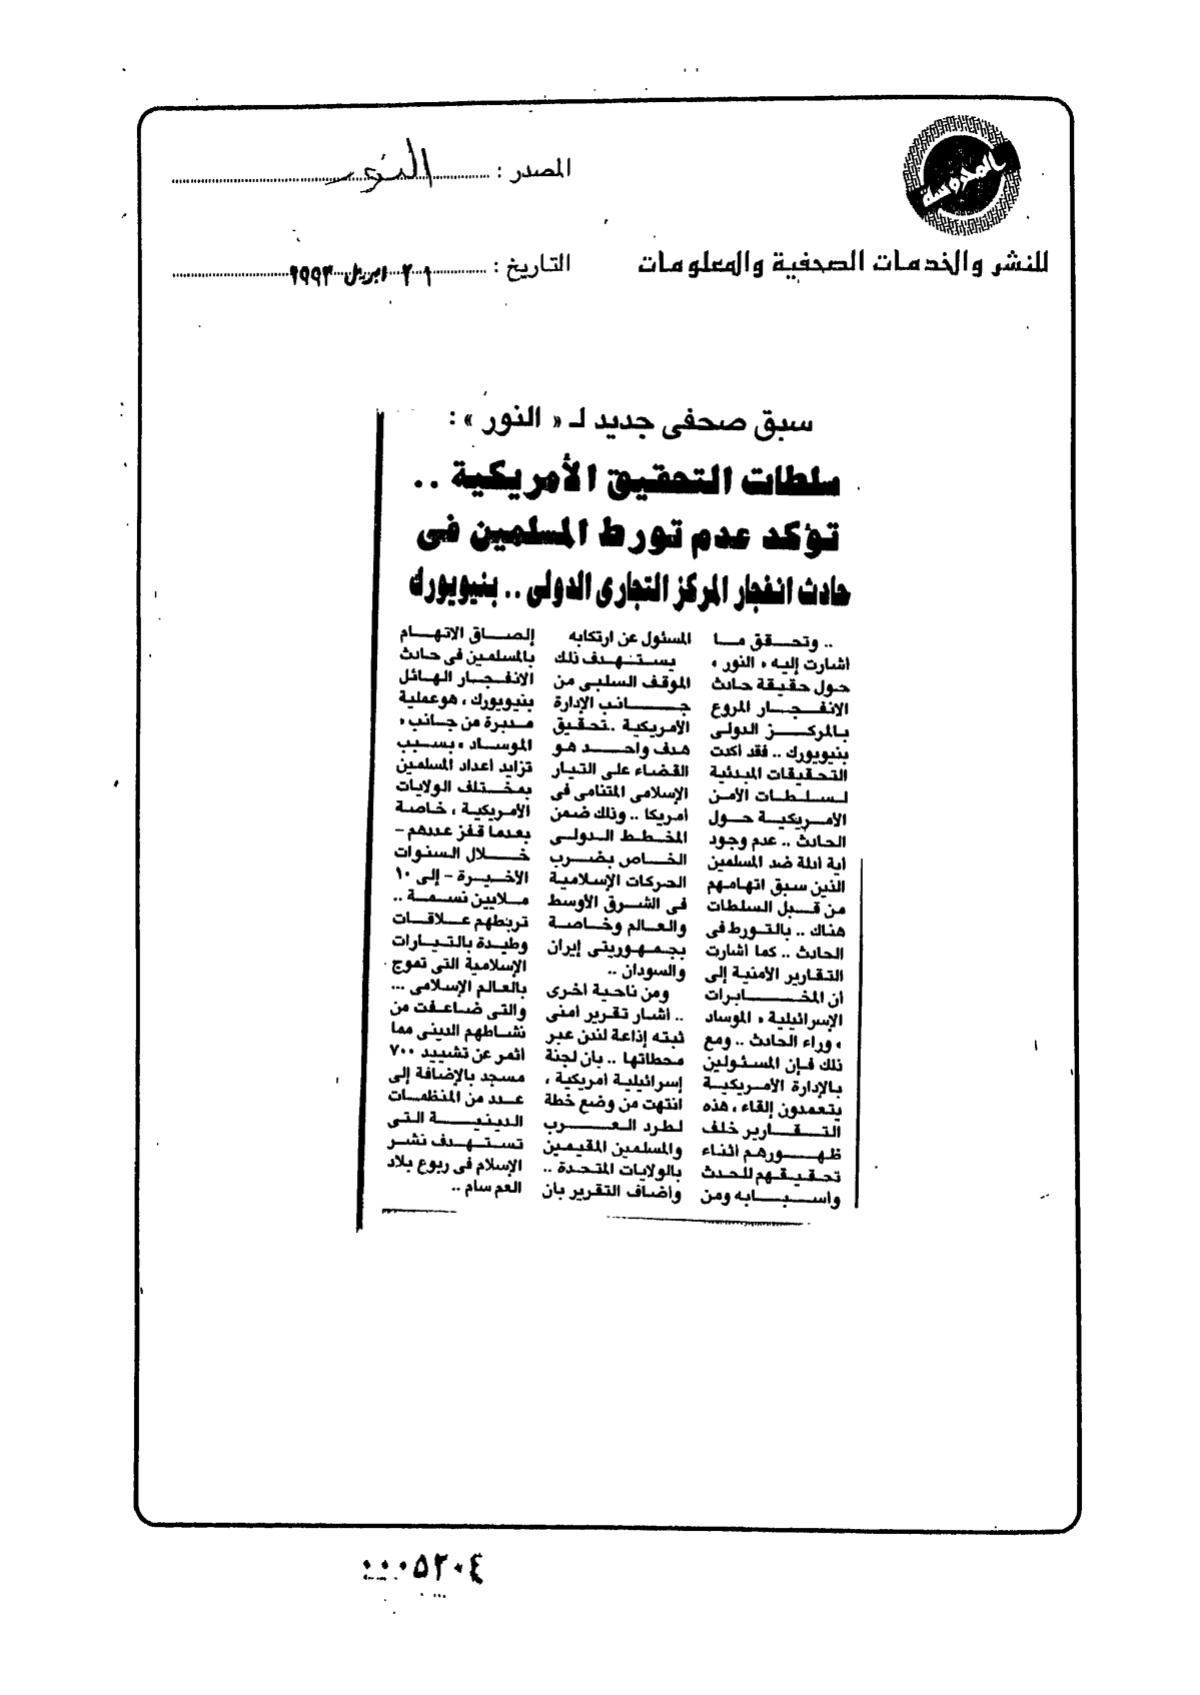 المصدر : النور
للنشر والخدمات الصحفية والمعلومات
التاريخ : ٢١ ابريل ١٩٩٣
سبق صحفى جديد لـ « النور » :
سلطات التحقيق الأمريكية ..
تؤكد عدم تورط المسلمين فى
حادث انفجار المركز التجارى الدولى .. بنيويورك
.. وتحقق ما
أشارت إليه « النور »
حول حقيقة حادث
الانفجار المروع
بالمركز الدولى
بنيويورك .. فقد أكدت
التحقيقات المبدئية
لسلطات الأمن
الأمريكية حول
الحادث .. عدم وجود
أية أدلة ضد المسلمين
الذين سبق اتهامهم
من قبل السلطات
هناك .. بالتورط فى
الحادث .. كما أشارت
التقارير الأمنية إلى
أن المخابرات
الإسرائيلية « الموساد
» وراء الحادث .. ومع
ذلك فإن المسئولين
بالإدارة الأمريكية
يتعمدون إلقاء ، هذه
التقارير خلف
ظهورهم أثناء
تحقيقهم للحدث
وأسبابه ومن
المسئول عن ارتكابه
يستهدف ذلك
الموقف السلبى من
جانب الإدارة
الأمريكية .. تحقيق
هدف واحد هو
القضاء على التيار
الإسلامى المتنامى فى
أمريكا .. وذلك ضمن
المخطط الدولى
الخاص بضرب
الحركات الإسلامية
فى الشرق الأوسط
والعالم وخاصة
بجمهوريتى إيران
والسودان ..
ومن ناحية أخرى
.. أشار تقرير أمنى
ثبته إذاعة لندن عبر
محطاتها .. بأن لجنة
إسرائيلية أمريكية ،
انتهت من وضع خطة
لطرد العرب
والمسلمين المقيمين
بالولايات المتحدة ..
وأضاف التقرير بأن
إلصاق الاتهام
بالمسلمين فى حادث
الانفجار الهائل
بنيويورك ، هو عملية
مدبرة من جانب «
الموساد » بسبب
تزايد أعداد المسلمين
بمختلف الولايات
الأمريكية ، خاصة
بعدما قفز عددهم –
خلال السنوات
الأخيرة – إلى ١٠
ملايين نسمة ..
تربطهم علاقات
وطيدة بالتيارات
الإسلامية التى تموج
بالعالم الإسلامى ...
والتى ضاعفت من
نشاطهم الدينى مما
أثمر عن تشييد ٧٠٠
مسجد بالإضافة إلى
عدد من المنظمات
الدينية التى
تستهدف نشر
الإسلام فى ربوع بلاد
العم سام ..
٠٠٠٥٢٠٤